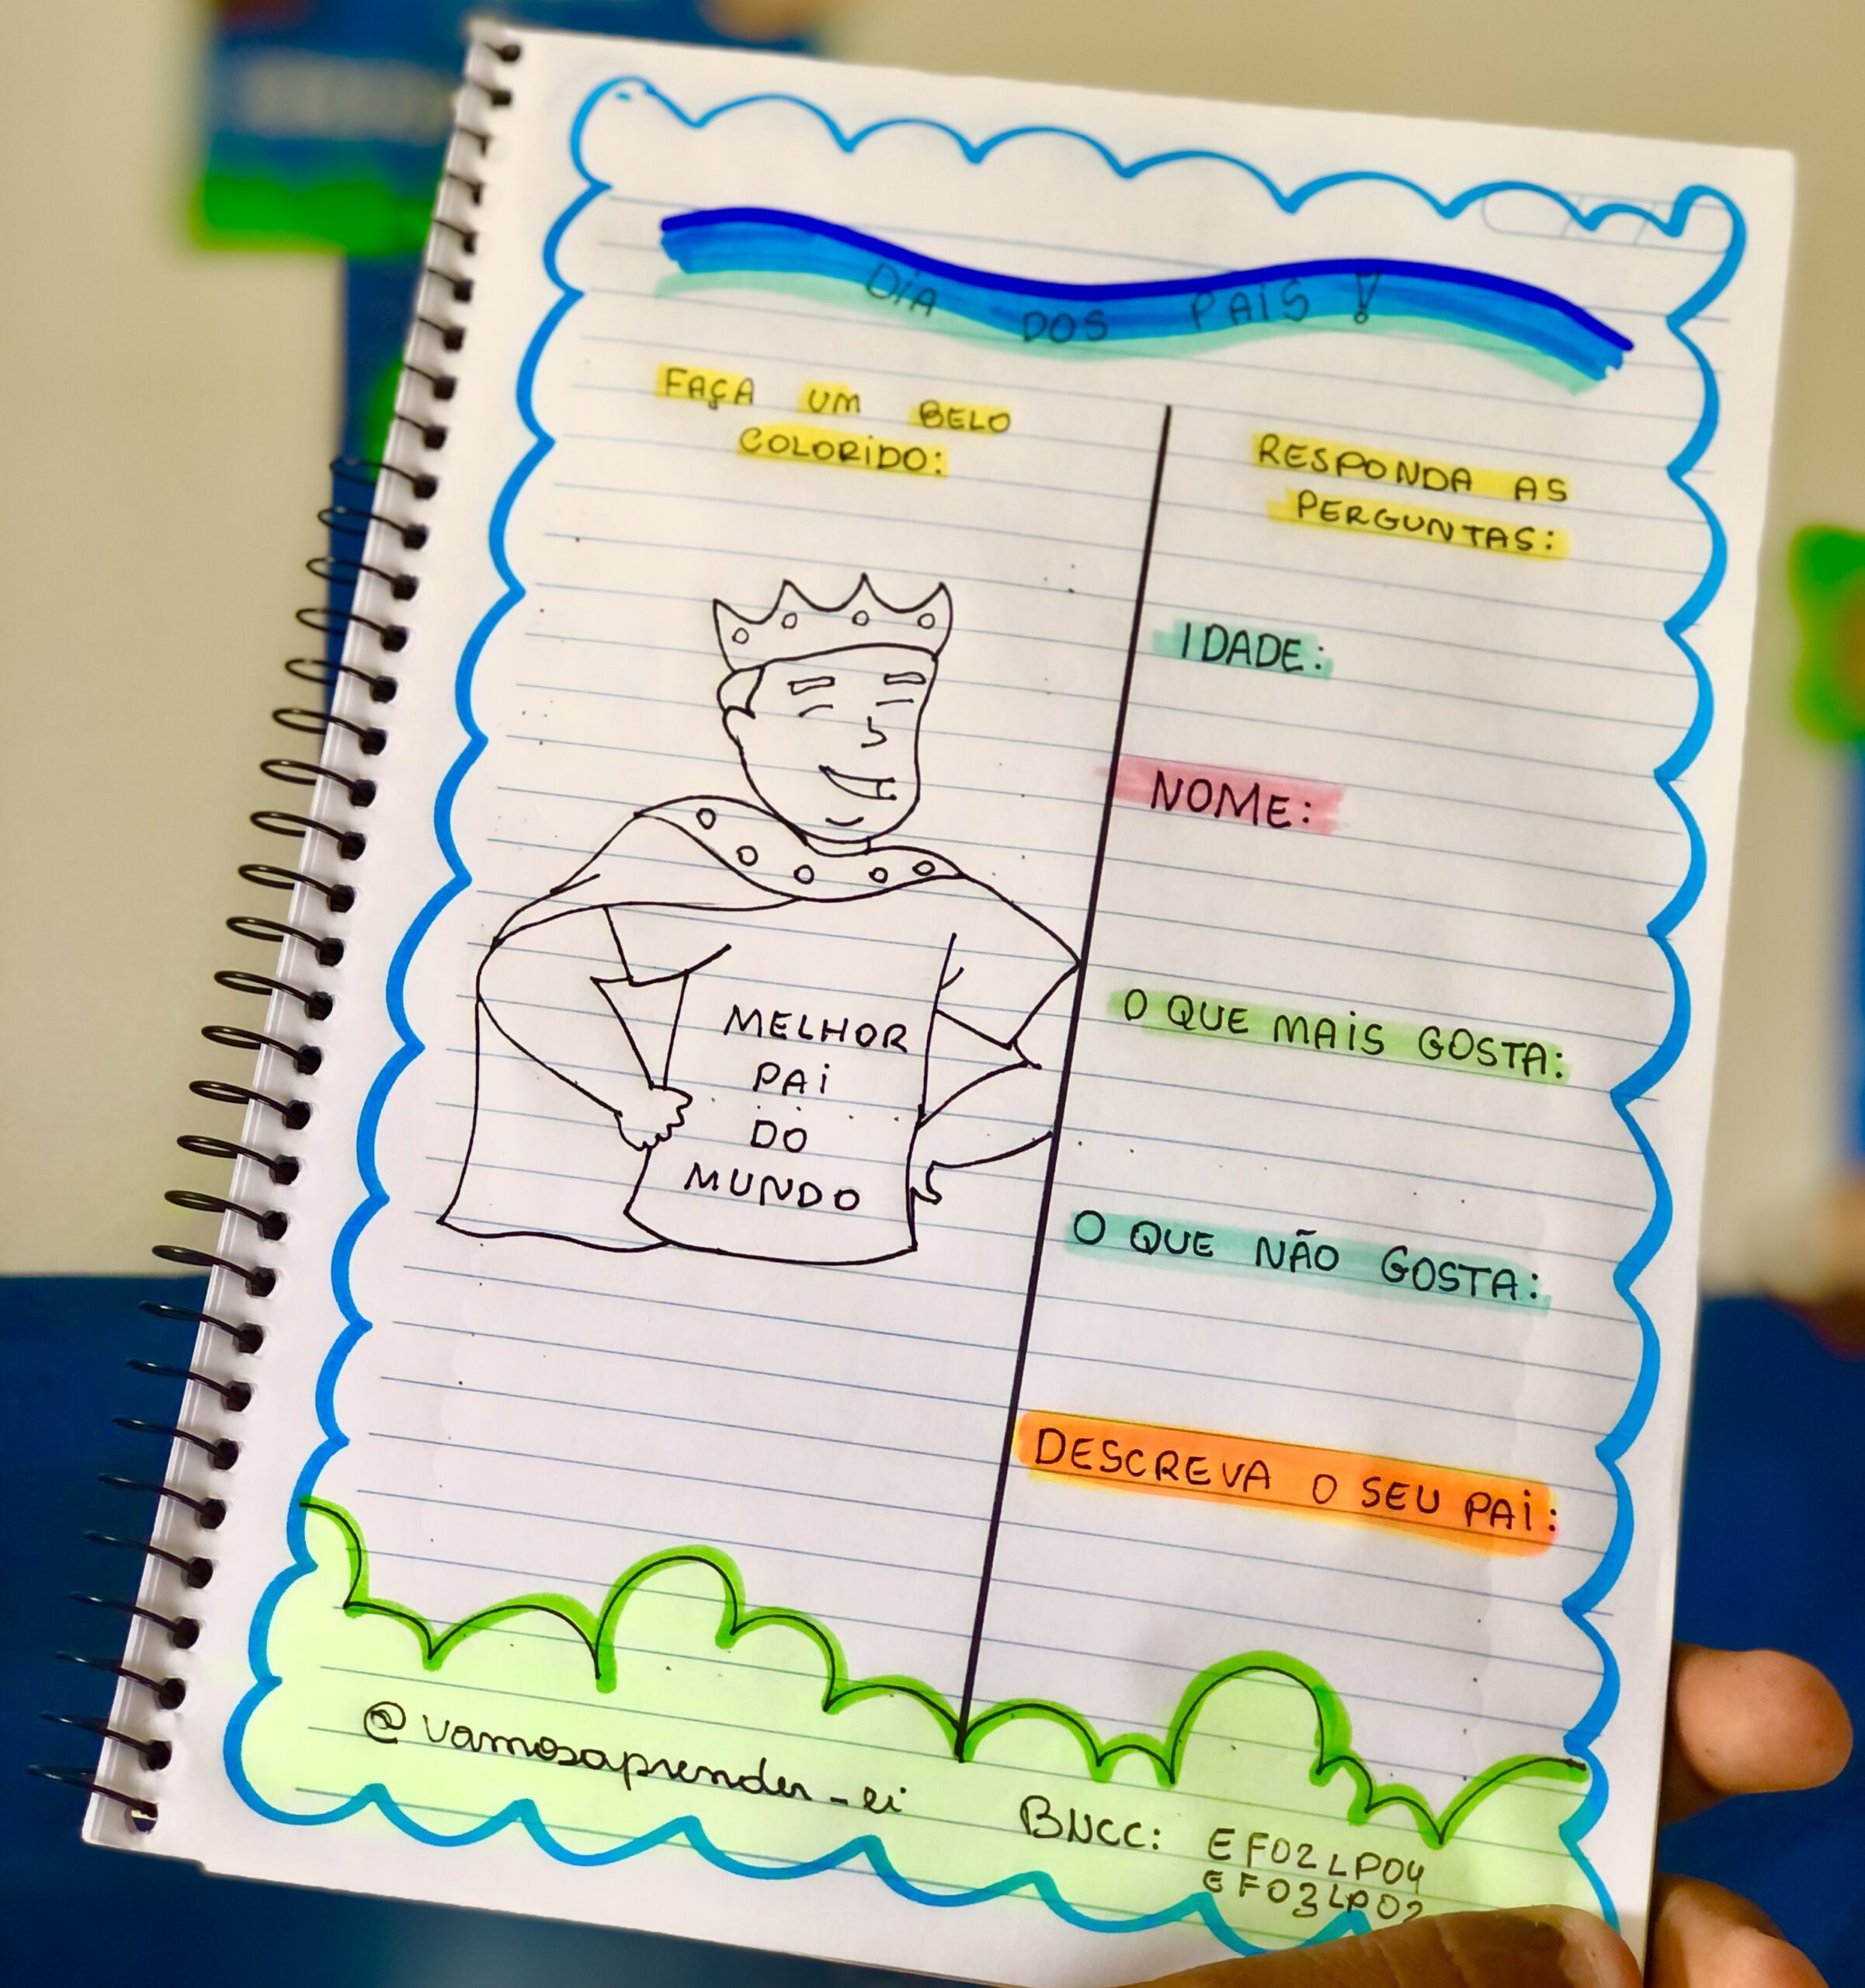 DiA DOS PAiS!
FAÇA UM BELO
COLORiDO:
MELHOR
PAi
DO
MUNDO
RESPONDA AS
PERGUNTAS:
IDADE:
NOME:
O QUE MAiS GOSTA:
O QUE NÃO GOSTA:
DESCREVA O SEU PAi:
@vamosaprender_ei
BNCC: EF02LP04
EF03LP02